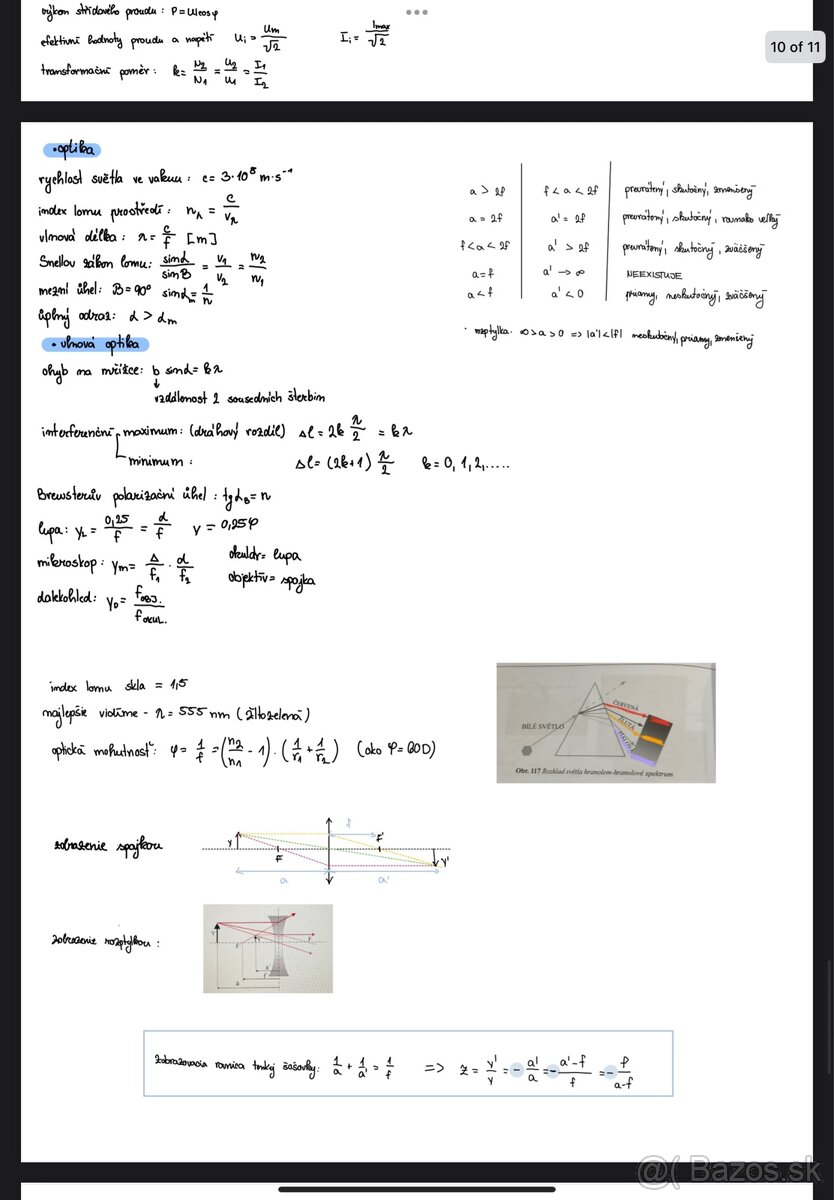 výkon střídavého proudu: P=UIcosφ
efektivní hodnoty proudu a napětí Ui = Um/√2 Ii = Imax/√2
transformační poměr: k = N2/N1 = U2/U1 = I1/I2
10 of 11
• optika
rychlost světla ve vakuu: c= 3·10⁸ m·s⁻¹
index lomu prostředí: nλ = c/vλ
vlnová délka: λ = c/f [m]
Snellov zákon lomu: sinα/sinβ = v1/v2 = n2/n1
mezní úhel: β=90° sinαm = 1/n
úplný odraz: α > αm
a > 2f f < a < 2f prevrátený, skutočný, zmenšený
a = 2f a' = 2f prevrátený, skutočný, rovnako veľký
f < a < 2f a' > 2f prevrátený, skutočný, zväčšený
a = f a' → ∞ NEEXISTUJE
a < f a' < 0 priamy, neskutočný, zväčšený
• rozptylka: ∞ > a > 0 => |a'| < |f| neskutočný, priamy, zmenšený
• vlnová optika
ohyb na mřížce: b sinα = kλ
↓
vzdálenost 2 sousedních štěrbin
interferenční maximum: (dráhový rozdíl) Δl = 2k λ/2 = kλ
minimum: Δl = (2k+1) λ/2 k = 0, 1, 2, .....
Brewsterův polarizační úhel: tgαB = n
lupa: γL = 0,25/f = d/f γ = 0,25φ
mikroskop: γm = Δ/f1 · d/f2 okulár = lupa
objektív = spojka
dalekohled: γD = fOBJ./fOKUL.
index lomu skla = 1,5
najlepšie vidíme - λ = 555 nm (žltozelená)
optická mohutnosť: φ = 1/f = (n2/n1 - 1)·(1/r1 + 1/r2) (oko φ = 60D)
BÍLÉ SVĚTLO
ČERVENÁ
ŽLUTÁ
FIALOVÁ
Obr. 117 Rozklad světla hranolem–hranolové spektrum
zobrazenie spojkou
y F f F' y'
a a'
zobrazenie rozptylkou:
zobrazovacia rovnica tenkej šošovky: 1/a + 1/a' = 1/f => z = y'/y = - a'/a = - a'-f/f = - f/a-f
@( Bazos.sk